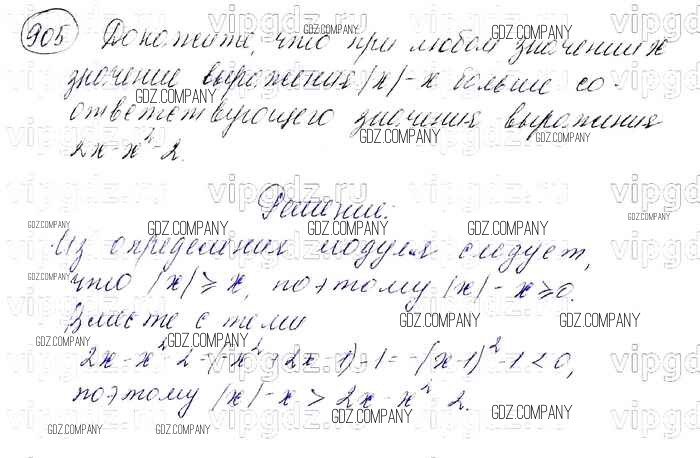 905 Докажите, что при любом значении x
значение выражения |x|-x больше со-
ответствующего значения выражения
2x-x²-2.
Решение:
Из определения модуля следует,
что |x|⩾x, поэтому |x|-x⩾0.
Вместе с тем
2x-x²-2=(-x²+2x-1)-1=-(x-1)²-1<0,
поэтому |x|-x>2x-x²-2.